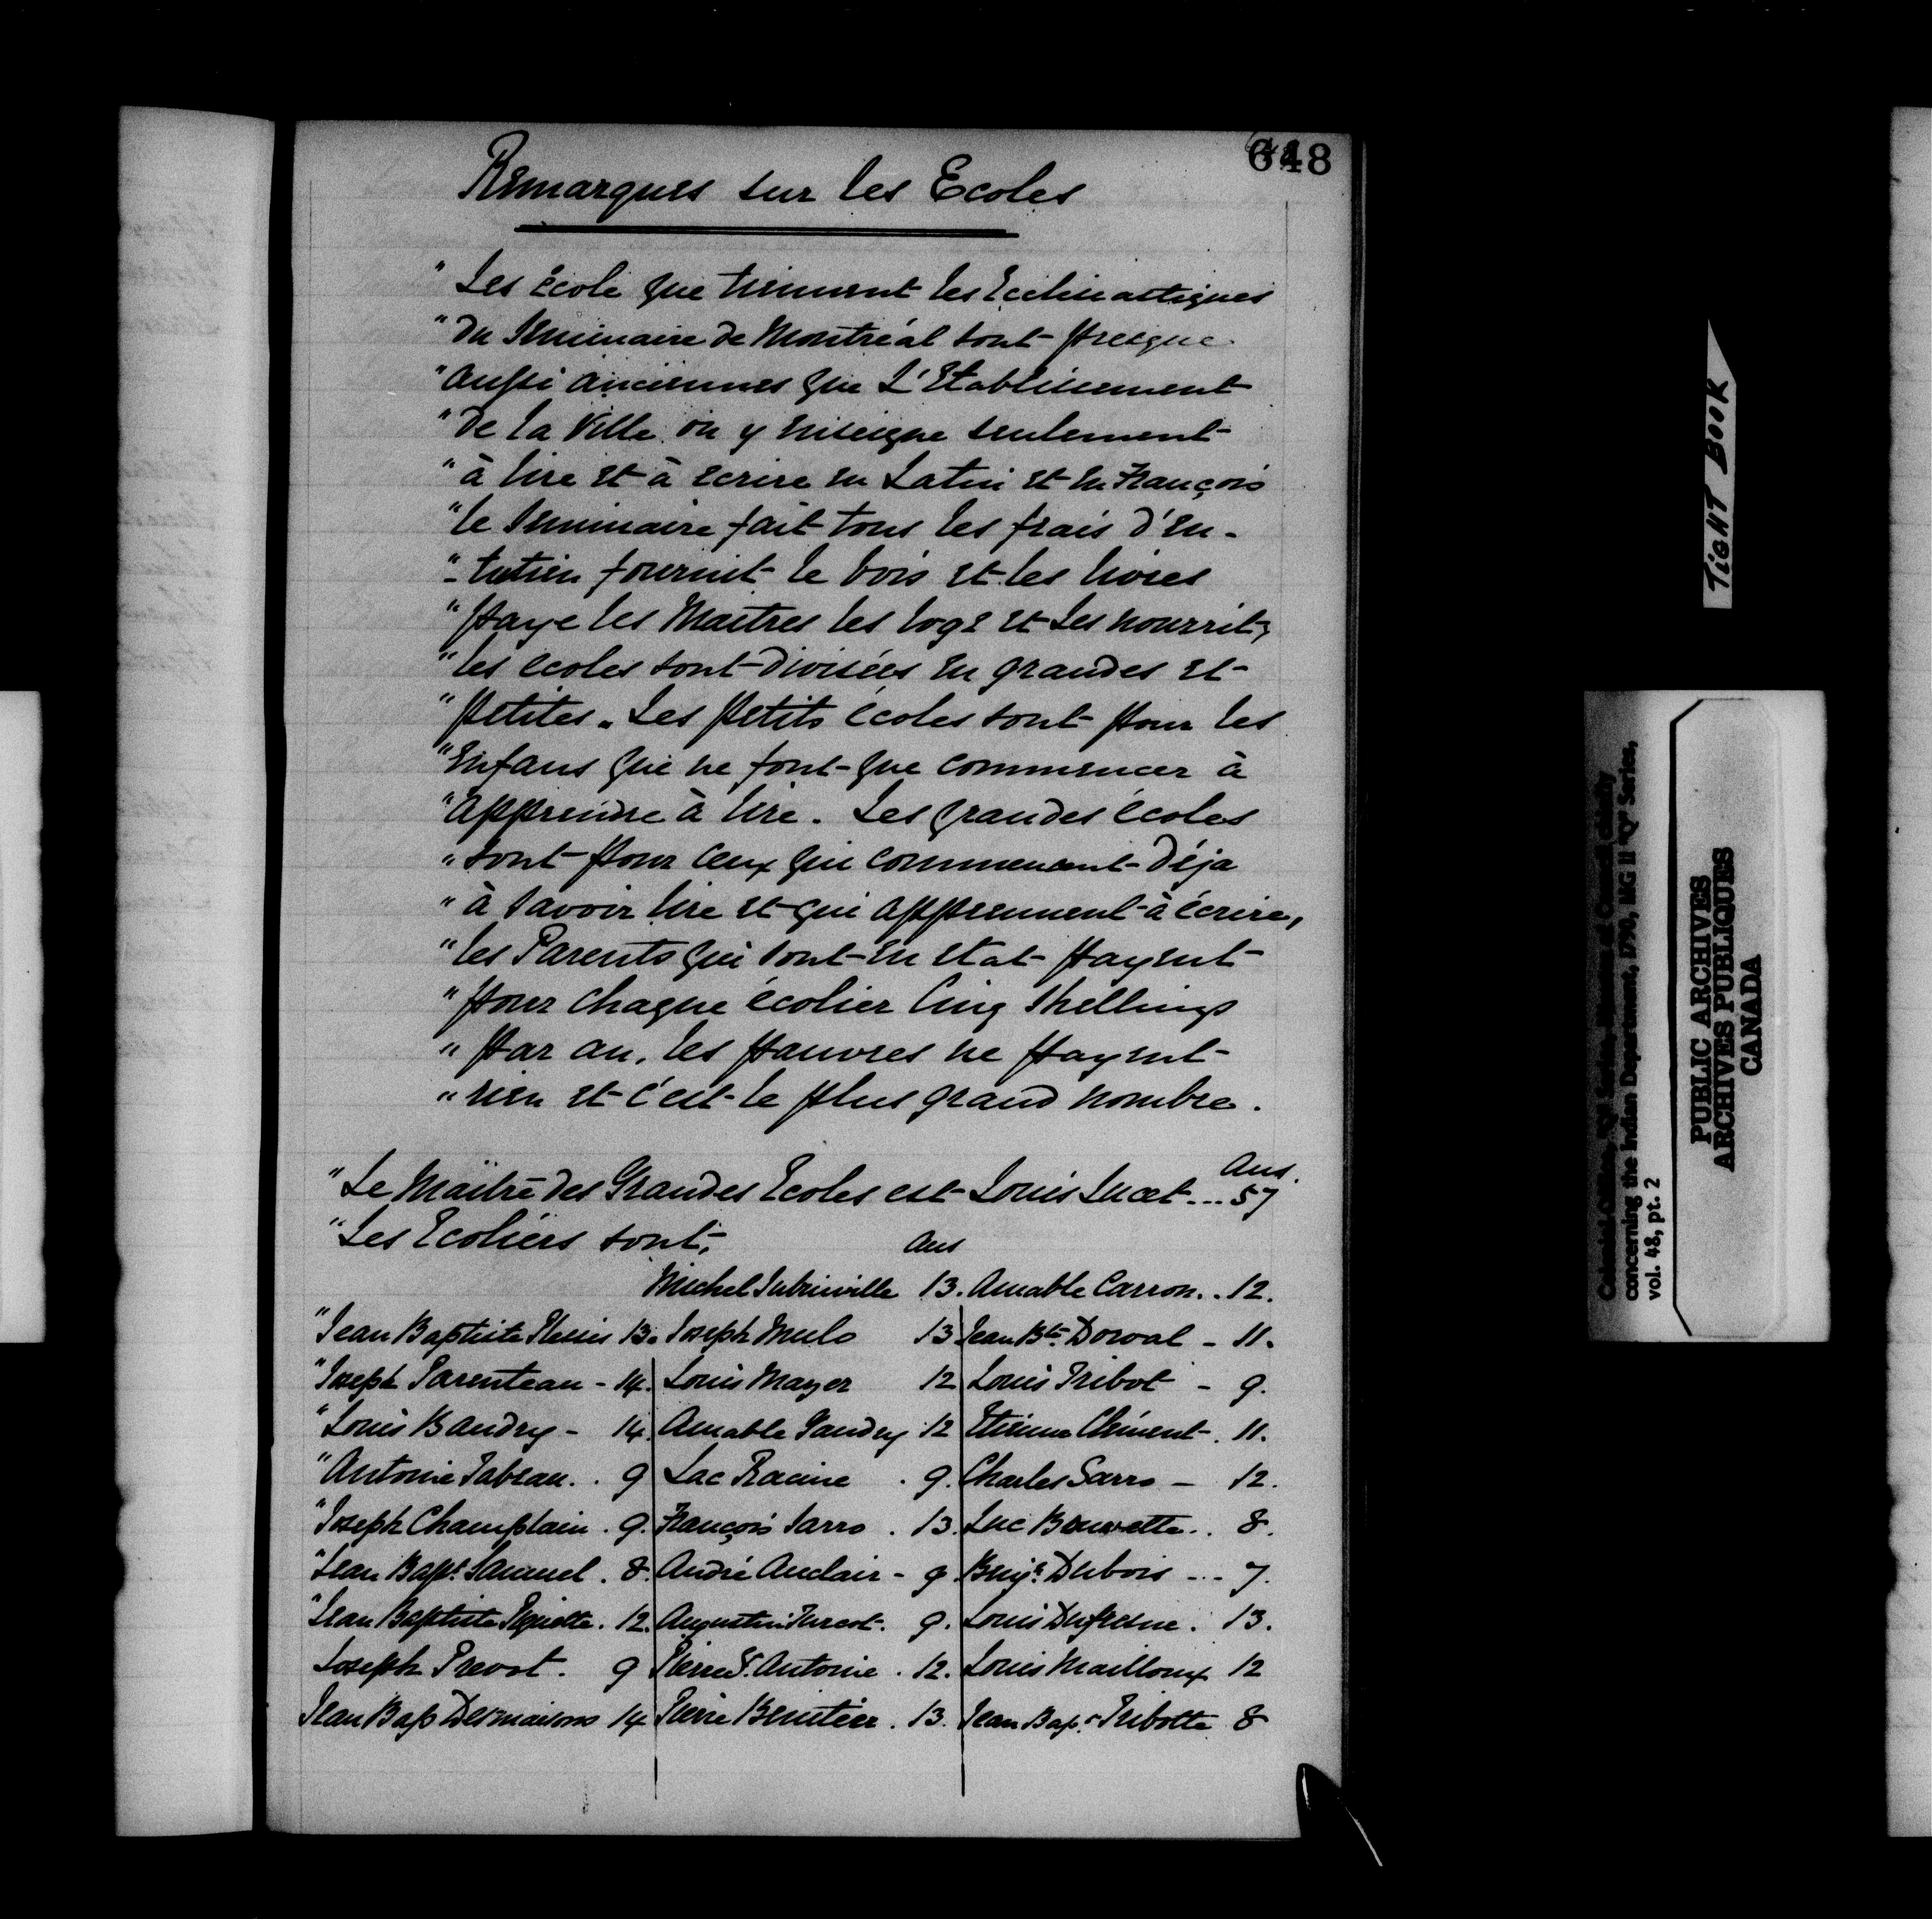 648
Remarques sur les Ecoles
" Les école que tiennent les Ecclésiastiques
" du Seminaire de Montréal sont presque
" aussi anciennes que L'Etablissement
" de la Ville on y enseigne seulement
" à lire et à ecrire en Latin et en François
" le Seminaire fait tous les frais d'en-
" -tretien fournit le bois et les livres
" paye les Maitres les loge et les nourrit,
" les écoles sont divisées en grandes et
" petites. Les petits écoles sont pour les
" Enfans qui ne font que commencer à
" apprendre à lire. Les grandes écoles
" sont pour ceux qui commencent déja
" à savoir lire et qui apprennent à écrire,
" les Parents qui sont en etat payent
" pour chaque écolier cinq Shellings
" par an, les pauvres ne payent
" rien et c'est le plus grand nombre.
Ans.
" Le Maître des Grandes Ecoles est Louis ... 57
" Les Ecoliers sont,
Ans
Michel 13. Amable Carron.. 12.
" Jean Baptiste Plessis 13. Joseph Mulo 13 Jean Bte Dorval - 11.
" Joseph Parenteau - 14. Louis Mayer 12 Louis Tribot - 9.
" Louis Baudry - 14. Amable Gaudry 12 Etienne Clément. 11.
" Antoine Tabeau. . 9 Lac Racine . 9. Charles Sarro - 12.
" Joseph Champlain . 9. François Sarro . 13. Luc Bouvette.. 8.
" Jean Bapt. Samuel . 8. André Auclair - 9. Benjn Dubois ... 7.
" Jean Baptiste . 12. Augustin Turcot. 9. Louis Dufresne . 13.
Joseph Prevost. 9 Pierre St. Antoine . 12. Louis Mailloux 12
Jean Bap Desmaisons 14 Pierre . 13. Jean Bap. Tribotte 8
TIGHT BOOK
concerning the Indian Department, 1790, MG 11 "Q" Series,
vol. 48, pt. 2
PUBLIC ARCHIVES
ARCHIVES PUBLIQUES
CANADA